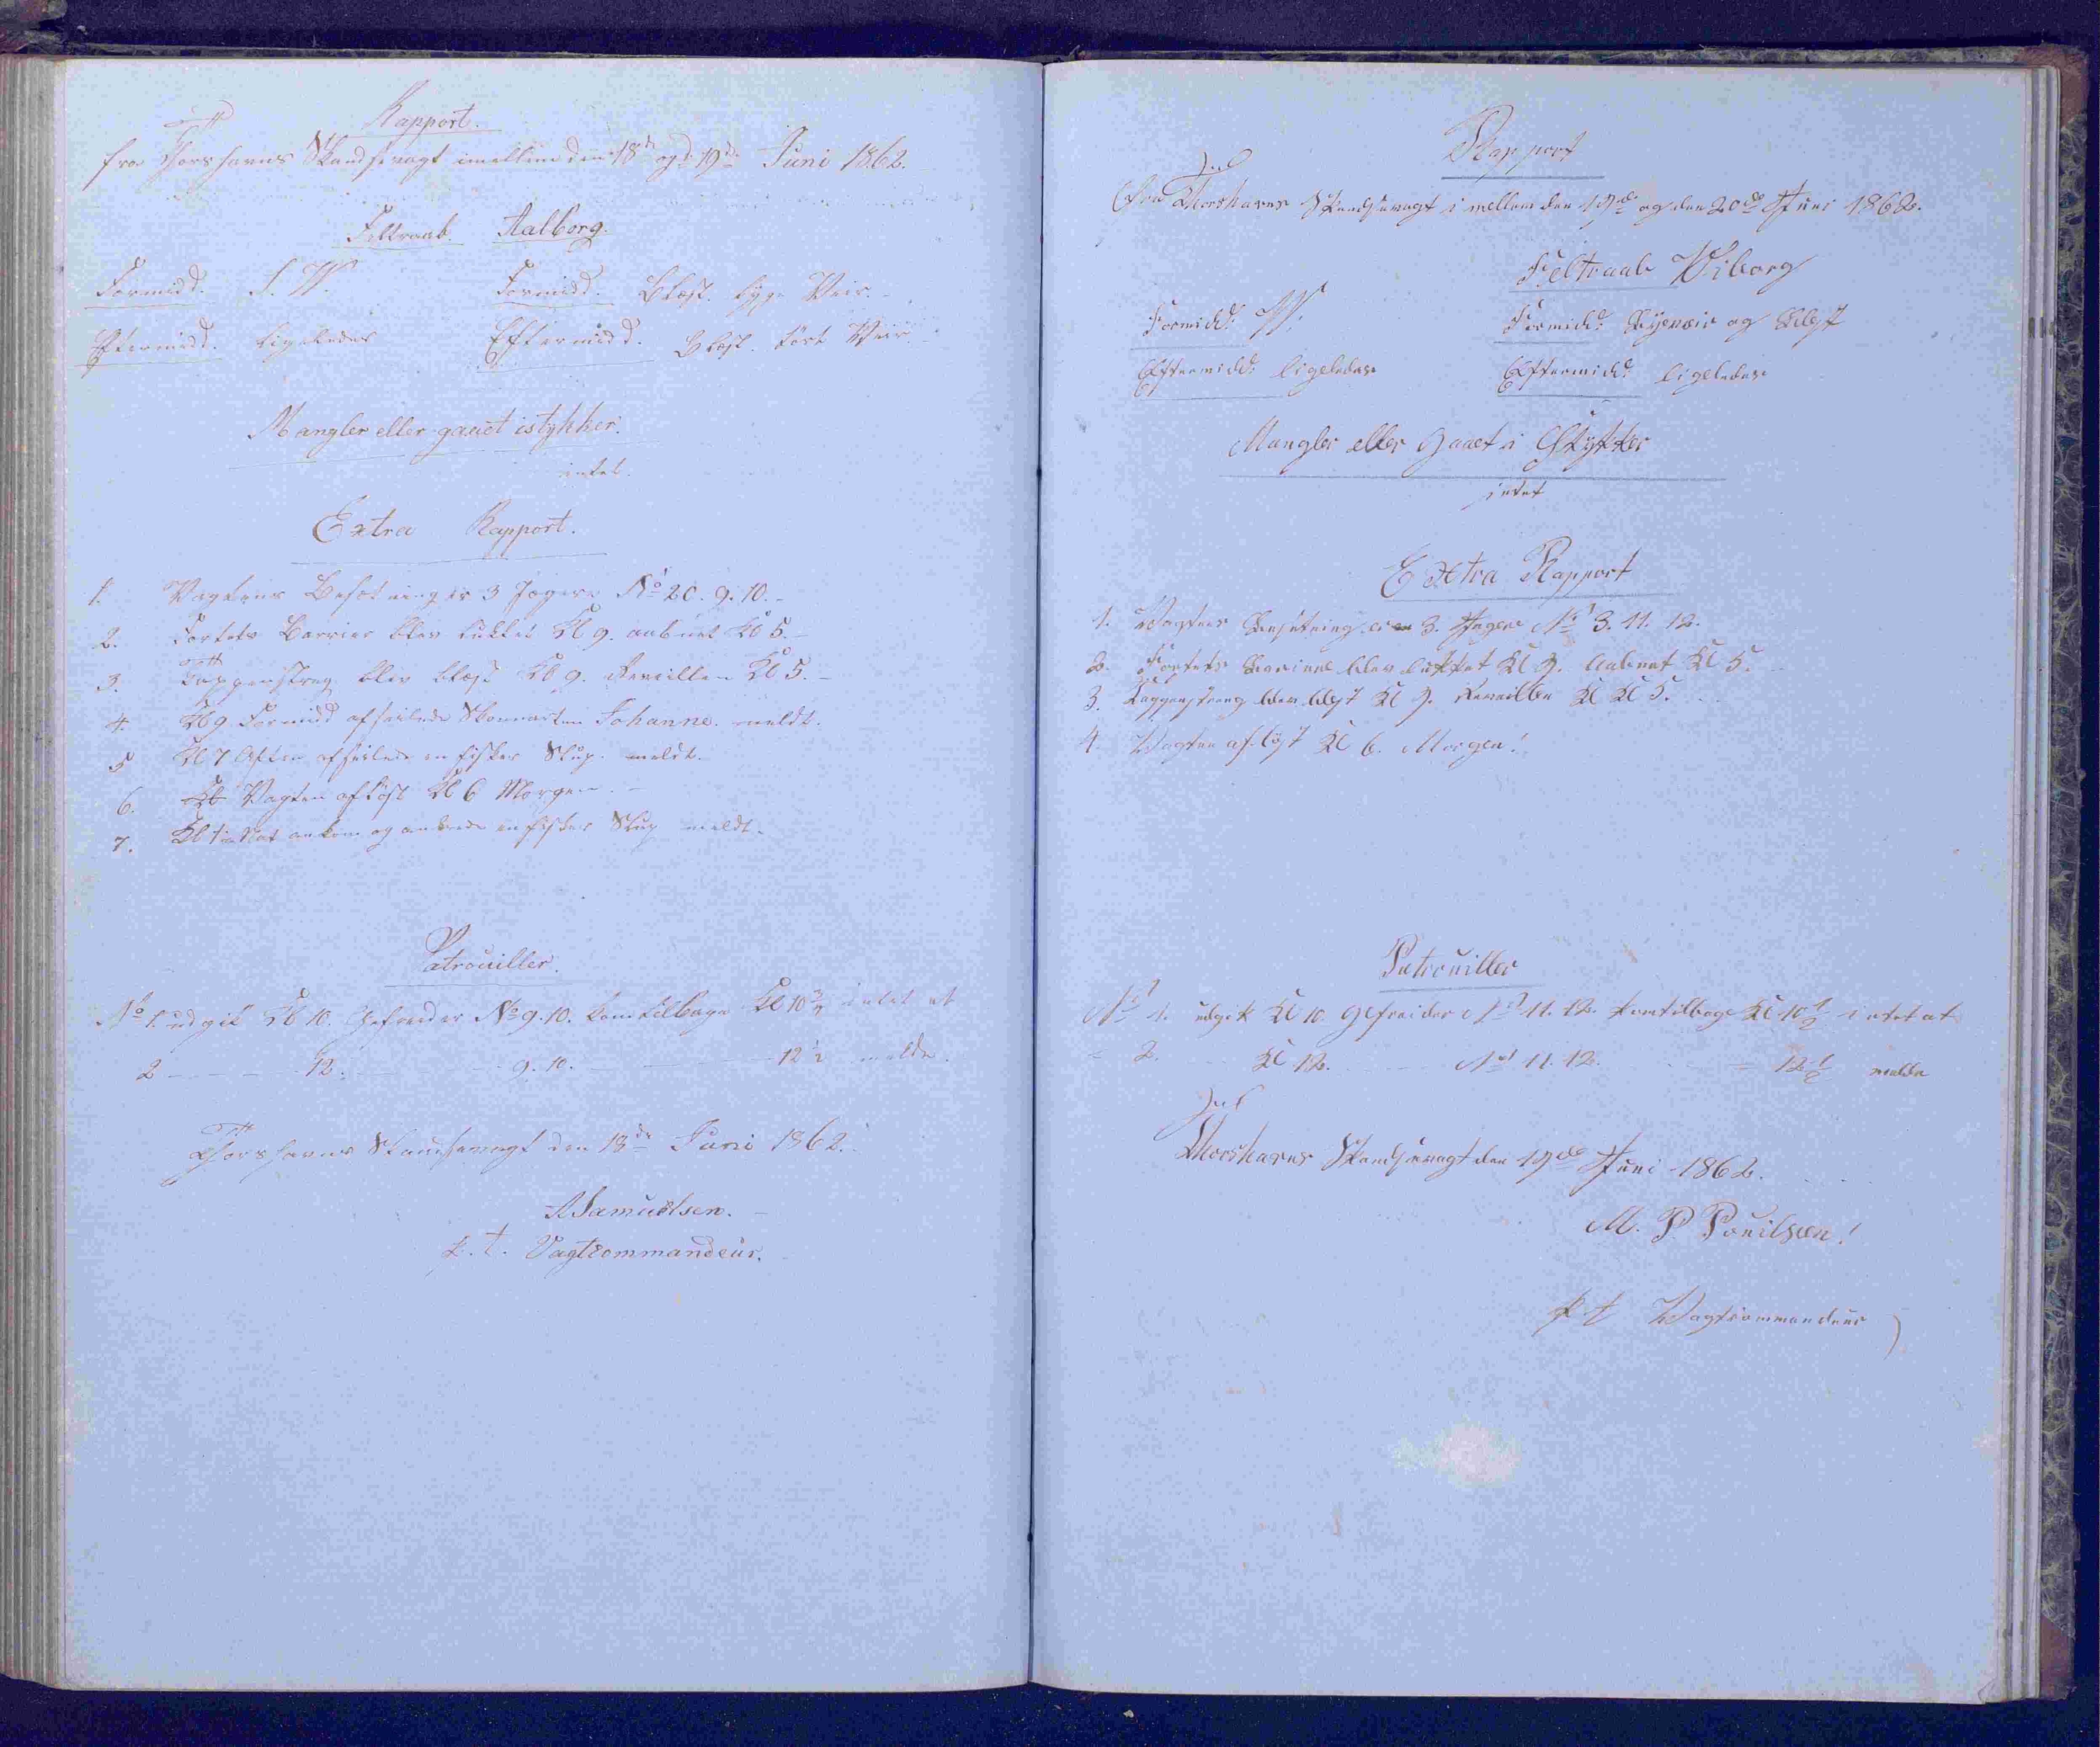 Rapport.
fra Thorshavns Skandsevagt imellem den 18de og d: 19de Juni 1862.
Feltraab. Aalborg.
Formidd. S. W. Formidd. Blæst. bygge Veir.
Eftermidd. ligeledes Eftermidd. Blæst. tört Veir.
Mangler eller gaaet istykker.
intet.
Extra Rapport.
1. Vagtens Besætning er 3 Jægere No 20. 9. 10.
2. Fortets Barrier blev lukket Kl 9. aabnet Kl 5.
3. Tappenstreg blev blæst Kl 9. Reveillen Kl 5.
4. Kl 9 Formidd afseilede Skonnerten Johanne. meldt.
5 Kl 7 Aften afseilede en fisker Slup. meldt.
6. Kl Vagten aflöst Kl 6 Morgen.
7. Kl 1 i Nat ankom og ankrede en fisker Slup meldt.
Patrouiller.
No 1. udgik Kl 10. Gefreider No 9. 10. kom tilbage Kl 10 1/2 intet at
2 12. 9. 10. 12 1/2 melde.
Thorshavns Skandsevagt den 18de Juni 1862.
Samuelsen.
p. t. Vagtcommandeur.
Rapport
Fra Thorshavns Skandsevagt imellem den 19de og den 20de Juni 1862.
Feltraab Wiborg
Formidd: W. Formidd: Bygeveir og Blæst
Eftermidd: ligeledes Eftermidd: ligeledes
Mangler eller Gaaet i Stykker
intet
Extra Rapport
1. Vagtens Besætning er 3. Jægere No 3. 11. 12.
2. Fortets Barriere blev lukket Kl 9. Aabnet Kl 5.
3. Tappenstreg blev blæst Kl 9. Reveillen Kl Kl 5.
4. Vagten aflöst Kl 6. Morgen!
Patrouiller
No 1. udgik Kl 10. Gefreider No 11. 12. kom tilbage Kl 10 1/2 intet at
= 2. Kl 12. No 11. 12. = 12 1/2 melde
Thorshavns Skandsevagt den 19de Juni 1862.
M. P Pouilsen!
p. t Vagtcommandeur